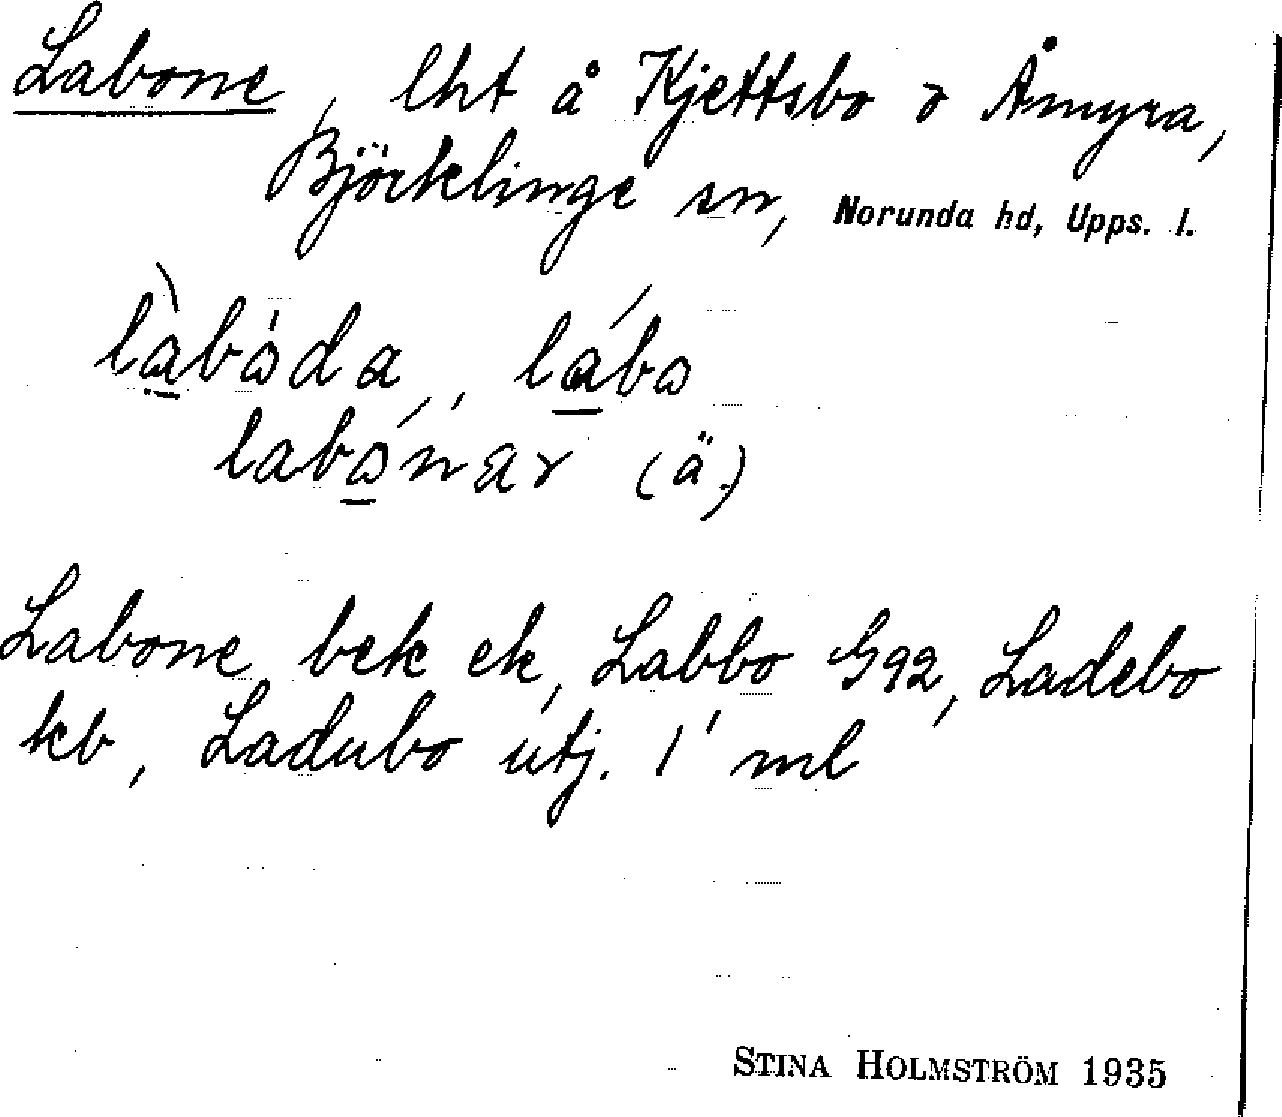 Labone, lht å Kjettsbo o Åmyra,
Björklinge sn, Norunda hd, Upps. l.
là̱båda, lá̱bɷ
labɷ̱́nar (ä.)
Labone bek ek, Labbo G92, Ladebo
kb, Ladubo utj. 1' ml
STINA HOLMSTRÖM 1935